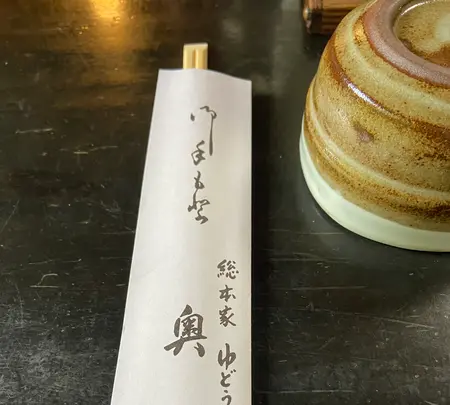 御手もと
総本家
ゆどう
奥